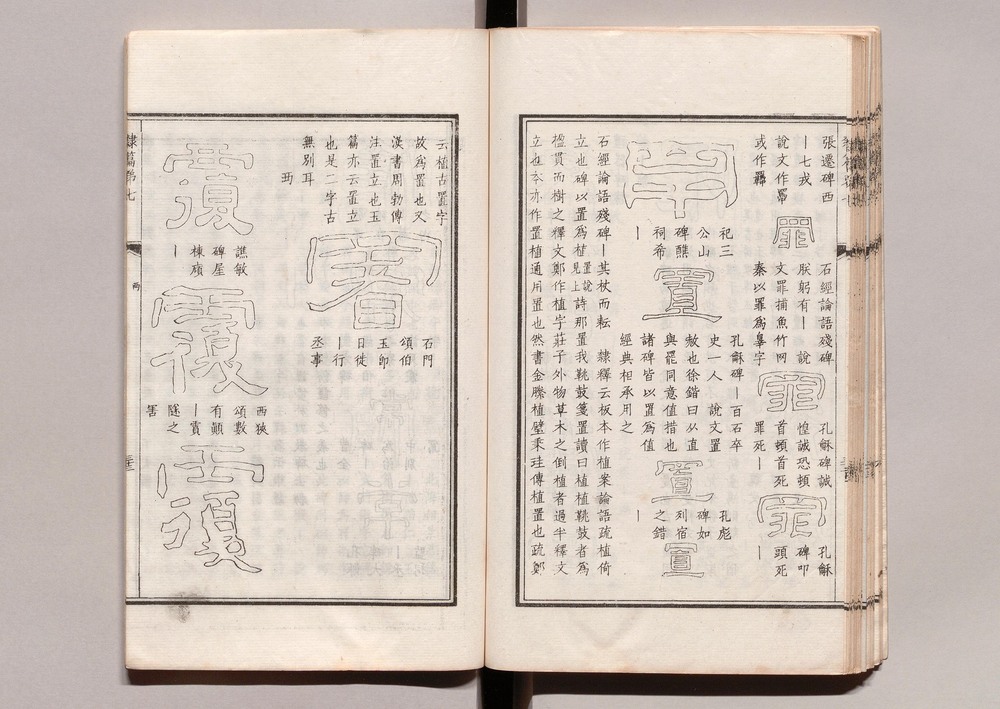 張遷碑西
｜七戎
說文作𦋺
或作羈
罪
石經論語殘碑
朕躬有｜ 說
文罪捕魚竹网
秦以罪為辠字
罪
孔龢碑誠
惶誠恐頓
首頓首死
罪死｜
罪
孔龢
碑叩
頭死
｜
祀三
公山
碑醮
祠希
｜
置
孔龢碑｜百石卒
史一人 說文置
赦也徐鍇曰从直
與罷同意值措也
諸碑皆以置為值
經典相承用之
置
孔彪
碑如
列宿
之錯
｜
置
石經論語殘碑｜其杖而耘 隸釋云板本作植案論語疏植倚
立也碑以置為植置說見上詩那置我鞉鼓箋置讀曰植植鞉鼓者為
楹貫而樹之釋文鄭作植字莊子外物草木之倒植者過半釋文
立也本亦作置植通用置也然書金縢植璧秉珪傳植置也疏鄭
云植古置字
故為置也又
漢書周勃傳
注置立也玉
篇亦云置立
也是二字古
無別耳
襾
石門
頌伯
玉卽
日徙
｜行
丞事
譙敏
碑屋
棟傾
｜
覆
西狹
頌數
有顛
｜霣
隧之
害
覆
隸篇弟七
襾